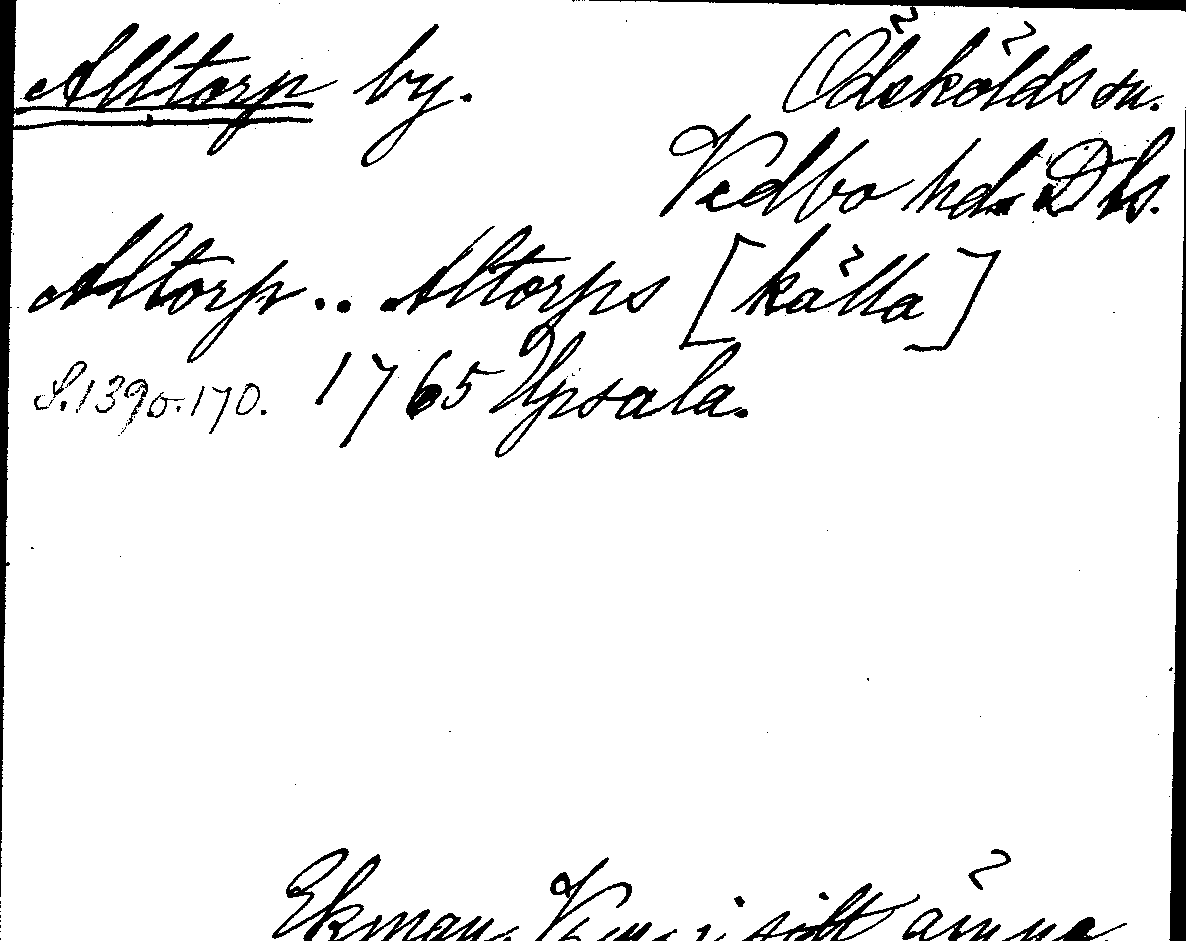 Alltorp by. Ödskölds sn.
Vedbo hd. Dls.
Altorp.. Altorps [källa]
S. 139 o. 170. 1765 Upsala.
Ekman, i sitt ämne